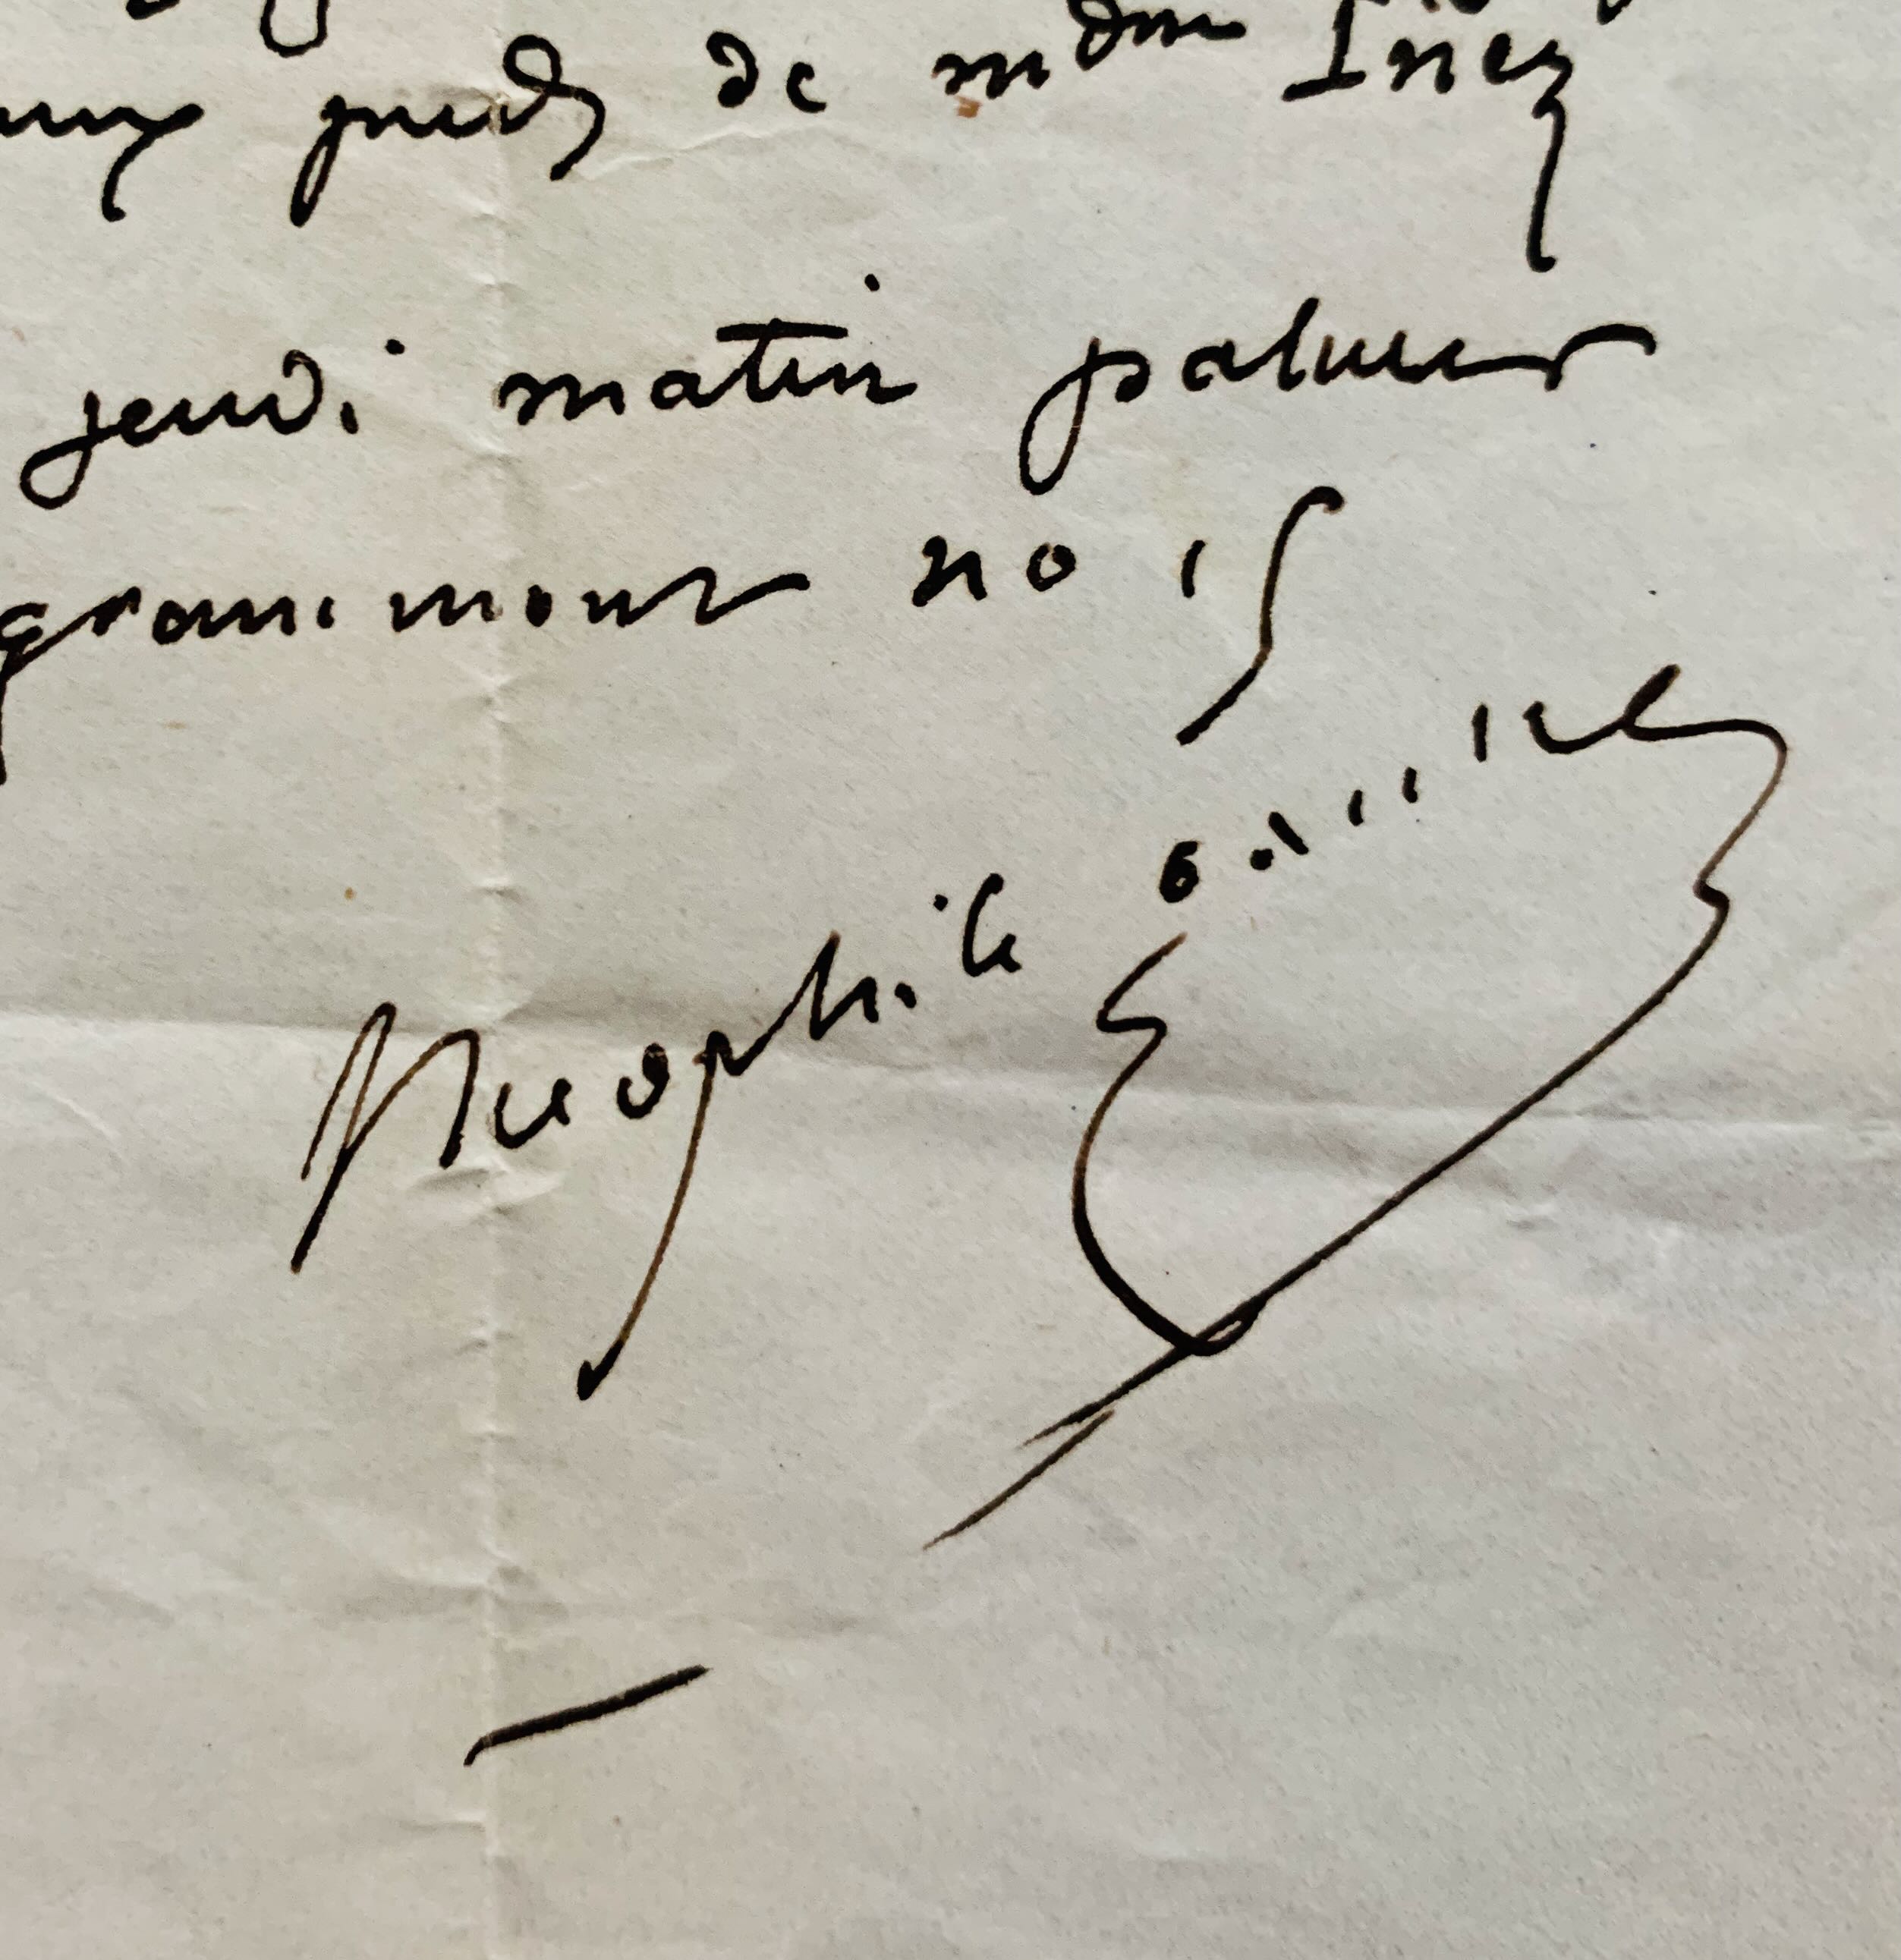 aux pieds de mdme Inez
jeudi matin
grammont no 15
Theophile Gautier